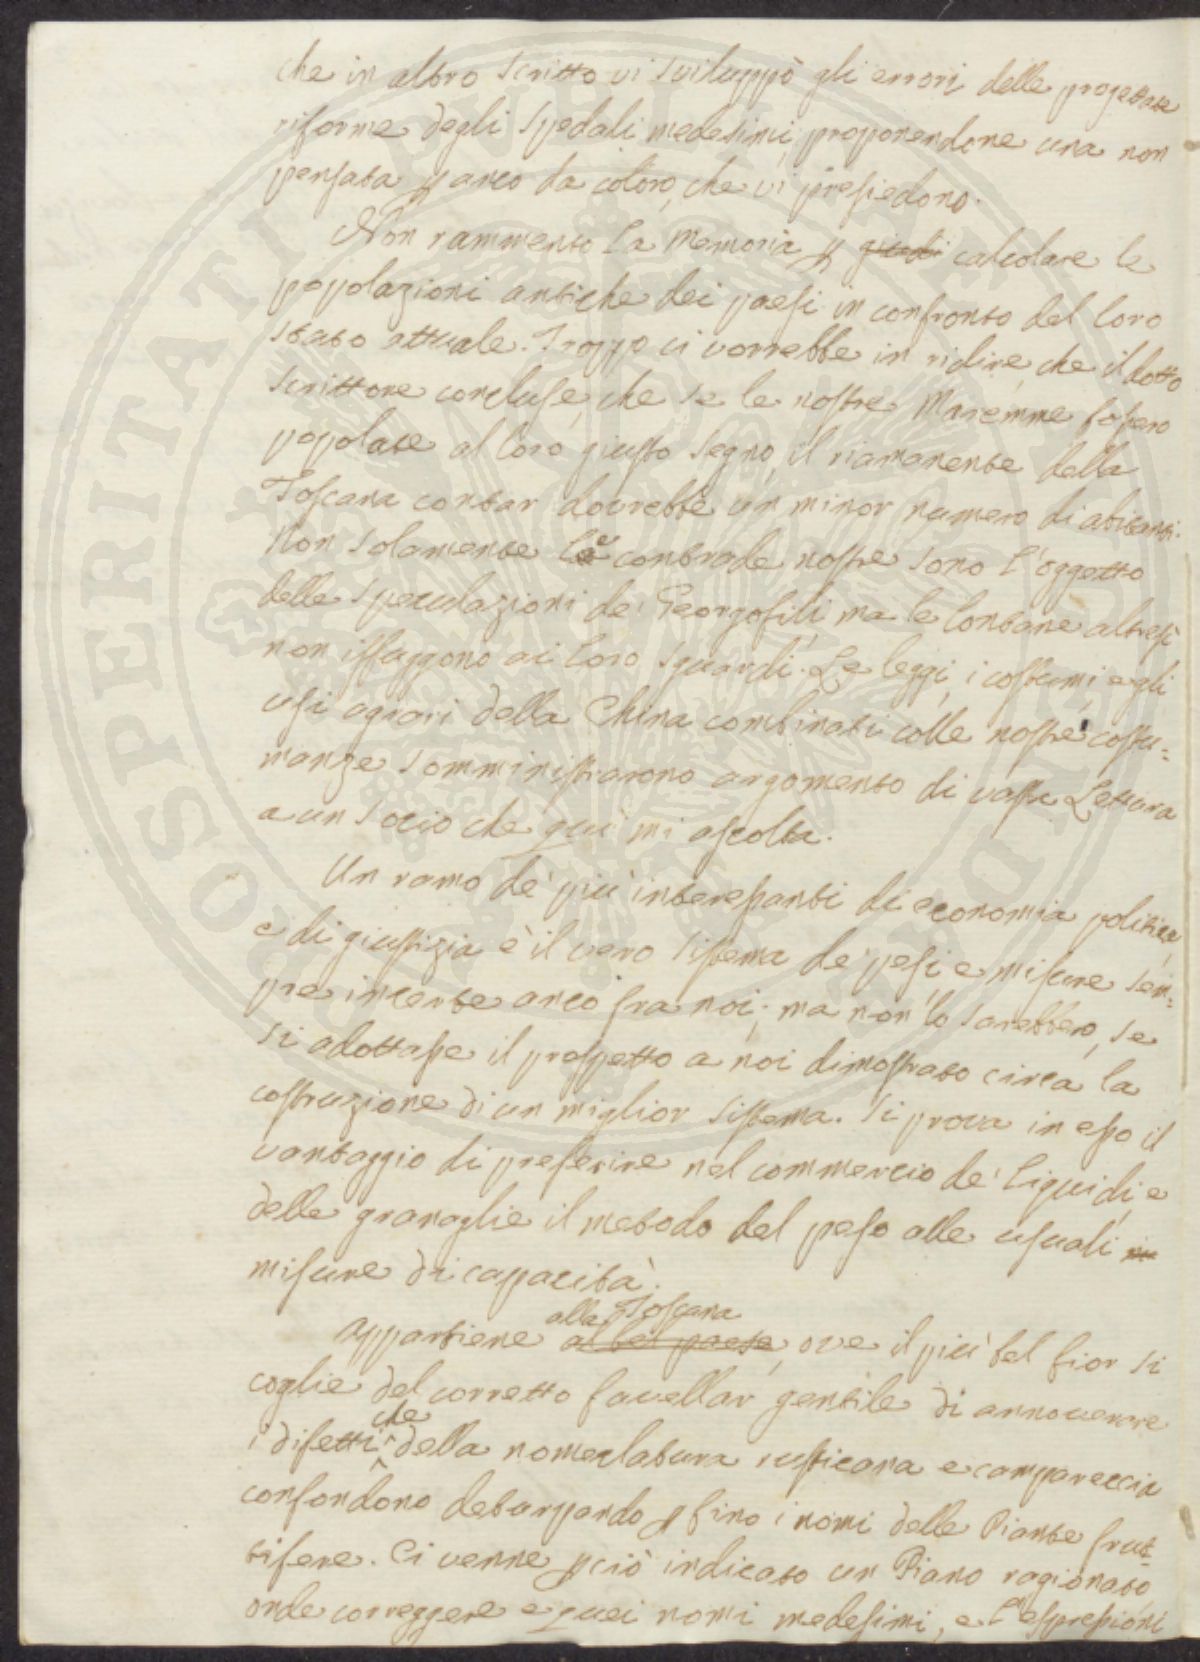 che in altro scritto vi sviluppò gli errori delle progettate
riforme degli Spedali medesimi, proponendone una non
pensata p anco da coloro, che vi presiedono.
Non rammento la memoria p giudi calcolare le
popolazioni antiche dei paesi in confronto del loro
stato attuale. Troppo ci vorrebbe in ridire, che il dotto
scrittore concluse, che se le nostre Maremme fossero
popolate al loro giusto segno, il riamanente della
Toscana contar dovrebbe un minor numero di abitanti.
Non solamente le contrade nostre sono l'oggetto
delle speculazioni de' Georgofili, ma le lontane altresì
non isfuggono ai loro sguardi. Le leggi, i costumi, e gli
usi agrari della China combinati colle nostre costu=
manze somministrarono argomento di vasta Lettura
a un Socio che quì mi ascolta.
Un ramo de' più interessanti di economia politica,
e di giustizia è il vero sistema de' pesi, e misure sem=
pre incerte anco fra noi; ma non lo sarebbero, se
si adottasse il prospetto a noi dimostrato circa la
costruzione di un miglior sistema. Si prova in esso il
vantaggio di preferire nel commercio de' liquidi, e
delle granaglie il metodo del peso alle usuali
misure di capacità.
alla Toscana
Appartiene al bel paese, ove il più bel fior si
coglie del corretto favellar gentile di annoverare
che
i difetti della nomenclatura rusticana e campareccia
confondono deturpando p fino i nomi delle Piante frut=
tifere. Ci venne p ciò indicato un Piano ragionato
onde correggere e quei nomi medesimi, e l'espressioni
PROSPERITATI PUBLICAE AUGENDAE